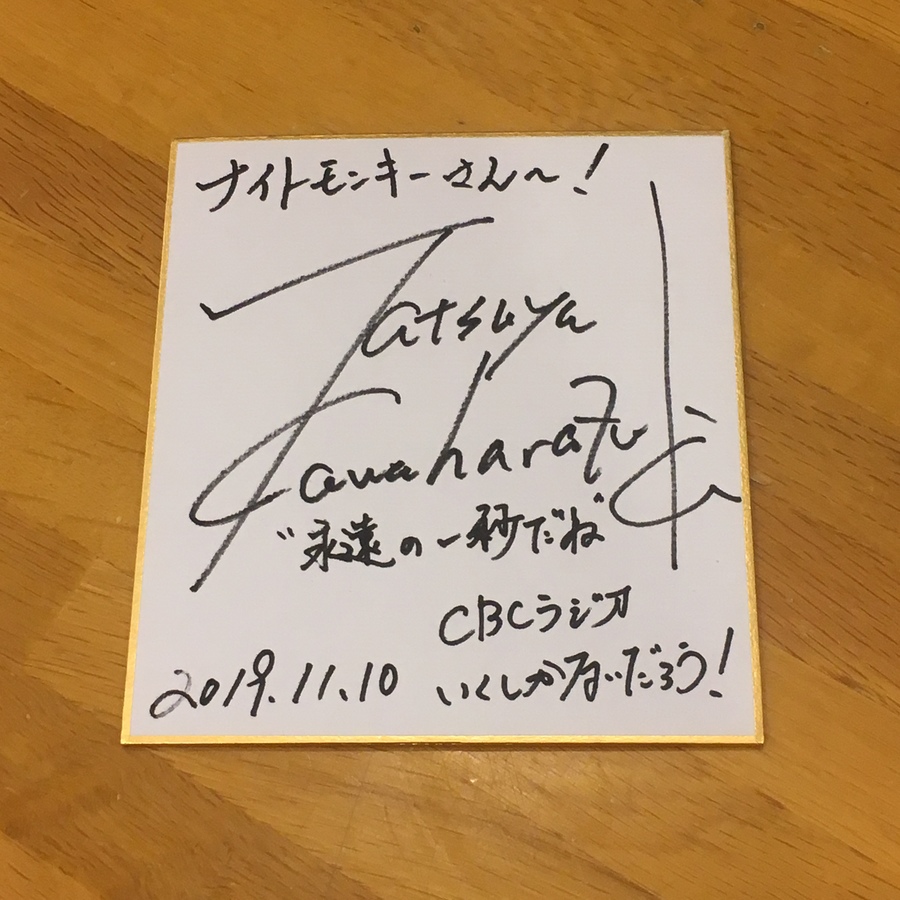 ナイトモンキーさん〜!
Tatsuya
Kawaharazuka
"永遠の一秒だね"
CBCラジオ
2019.11.10 いくしかないだろう!